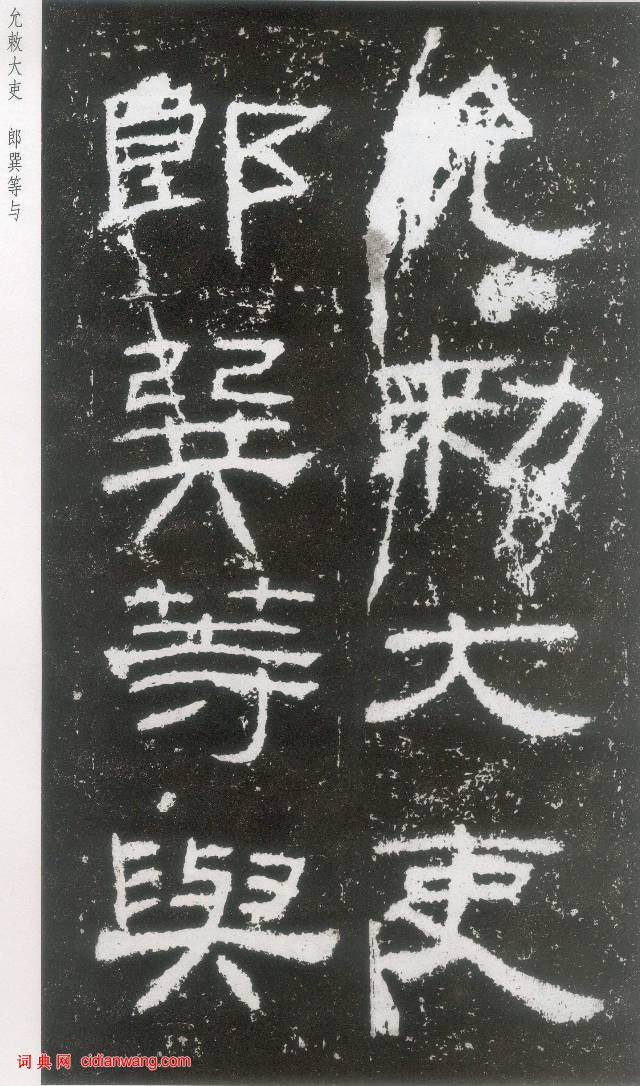 允勑大吏
郎巽等與
允敕大吏　郎巽等与
词典网 cidianwang.com